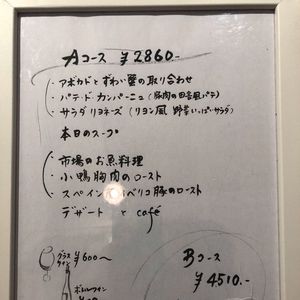 Aコース ¥2860.-
・アボカドとずわい蟹の取り合わせ
・パテ・ド・カンパーニュ(豚肉の田舎風パテ)
・サラダリヨネーズ(リヨン風 野菜いっぱいサラダ)
本日のスープ
・市場のお魚料理
・小鴨胸肉のロースト
・スペイン イベリコ豚のロースト
デザート と café
グラスワイン ¥600〜
ボトルワイン
Bコース
¥4510.-